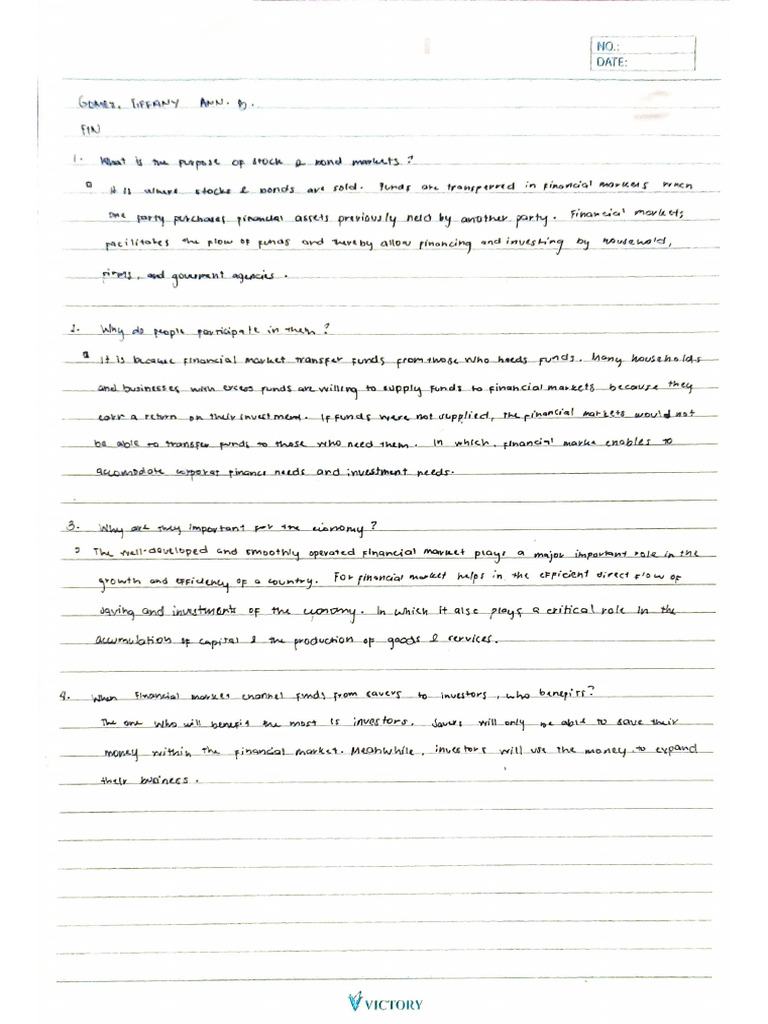 NO.:
DATE:
GOMEZ, TIFFANY ANN. B.
FIN
1. What is the purpose of stock & bond markets?
It is where stocks & bonds are sold. Funds are transferred in financial markets when
one party purchases financial assets previously held by another party. Financial markets
facilitates the flow of funds and thereby allow financing and investing by household,
firms, and government agencies.
2. Why do people participate in them?
It is because financial market transfer funds from those who needs funds. Many households
and businesses with excess funds are willing to supply funds to financial markets because they
earn a return on their investment. If funds were not supplied, the financial markets would not
be able to transfer funds to those who need them. In which, financial marke enables to
accomodate corporat finance needs and investment needs.
3. Why are they important for the economy?
The well-developed and smoothly operated financial market plays a major important role in the
growth and efficiency of a country. For financial market helps in the efficient direct flow of
saving and investments of the economy. In which it also plays a critical role in the
accumulation of capital & the production of goods & services.
4. When financial market channel funds from savers to investors, who benefits?
The one who will benefit the most is investors. Savers will only be able to save their
money within the financial market. Meanwhile, investors will use the money to expand
their business.
VICTORY